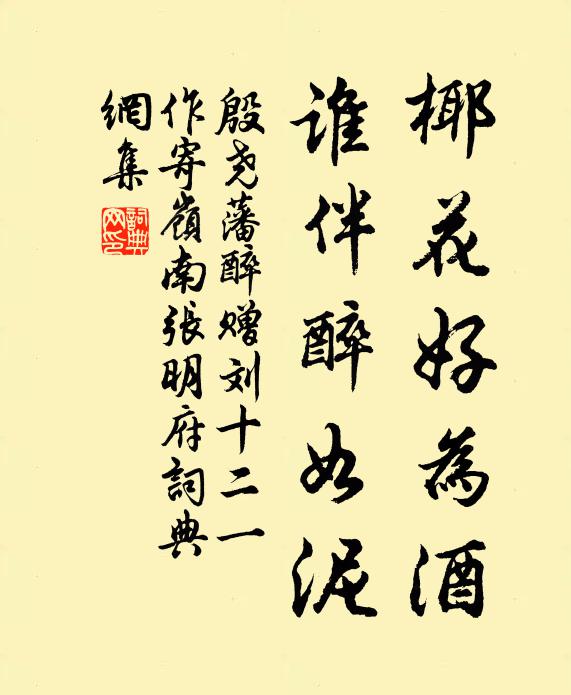 椰花好為酒
誰伴醉如泥
殷尧藩醉赠刘十二一
作寄嶺南張明府詞典
網集
詞典
网印